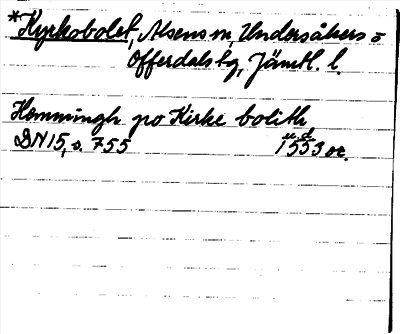 *Kyrkobolet, Alsens sn, Undersåkers o
Offerdals tg, Jämtl. l.
Hemmingh po Kirke bolith
DN 15, s. 755 u.d. 1553 or.